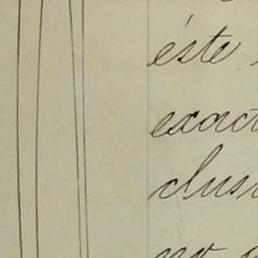 éste
exact
clusi
no